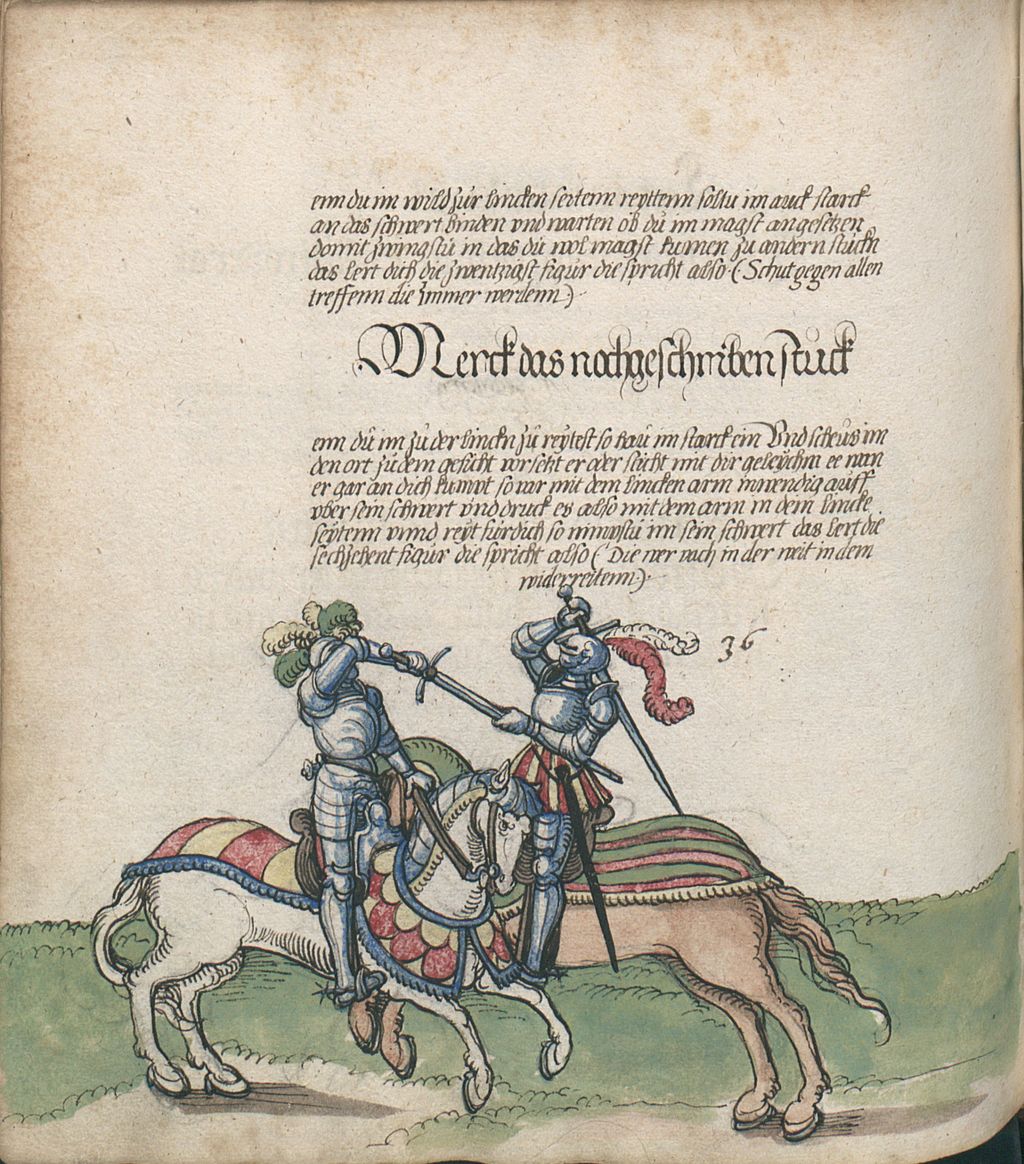 enn du im wild zur lincken seitenn reyttenn soltu im auck starck
an das schwert binden vnd warten ob du im magst angesetzen
domit zwingstu in das du wol magst kumen zu andern stuckn
das lert dich die zwentzigst figur die spricht also ( Schut gegen allen
treffenn die immer werdenn )
Merck das nochgeschriben stuck
enn du im zu der linckn zu reytest so hau im starck ein Vnd scheus im
den ort zu dem gesicht vorsetzt er oder sticht mit dir geleychm ee wan
er gar an dich kumpt so var mit dem lincken arm inwendig auff
vber sein schwert vnd druck es also mit dem arm in dein lincke
seytenn vnnd reyt fur dich so nimpstu im sein schwert das lert die
sechzehent figur die spricht also ( Die wer nach in der weit in dem
widerreitenn )
36